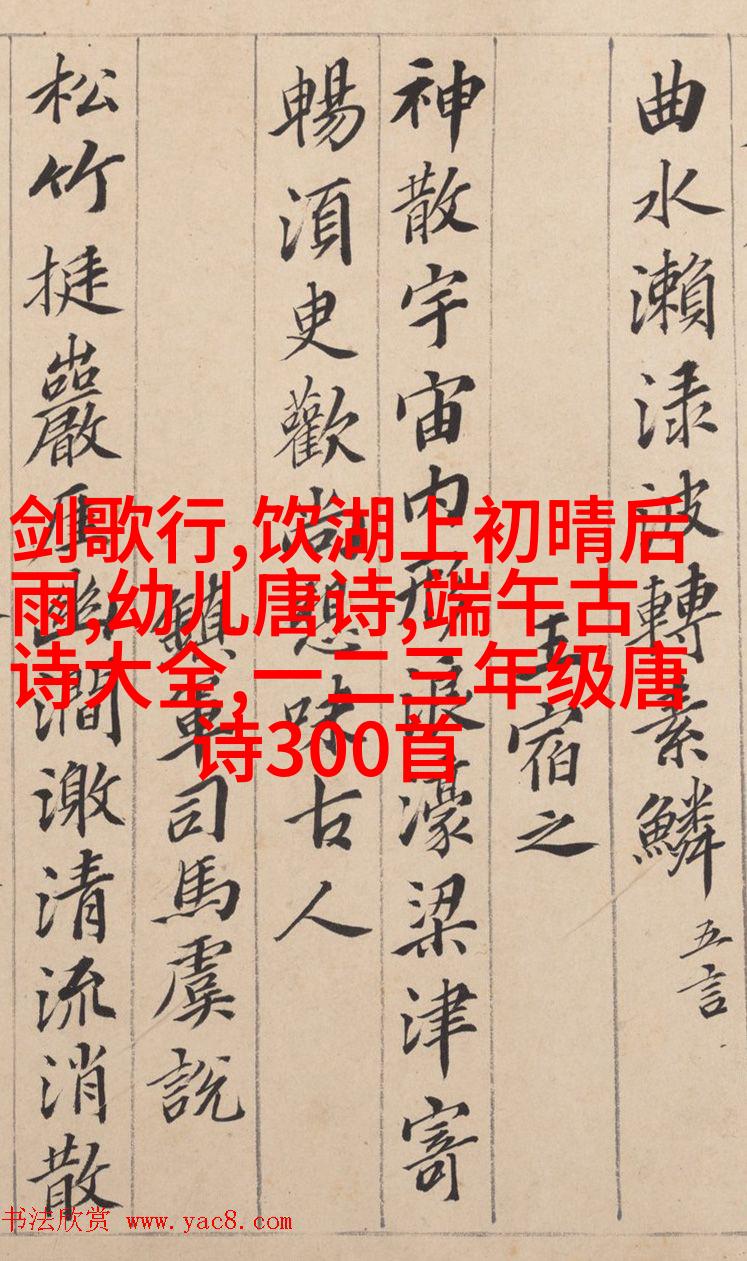 曲水瀨渌波轉素鱗 五言
王宿之
神散宇宙內形浪濠梁津寄
暢湏臾歡尚憩味古人
鎮軍司馬虞說
松竹挺巖崖幽澗激清流消散
剑歌行,饮湖上初晴后
雨,幼儿唐诗,端午古
诗大全,一二三年级唐
诗300首
书法欣赏 www.yac8.com